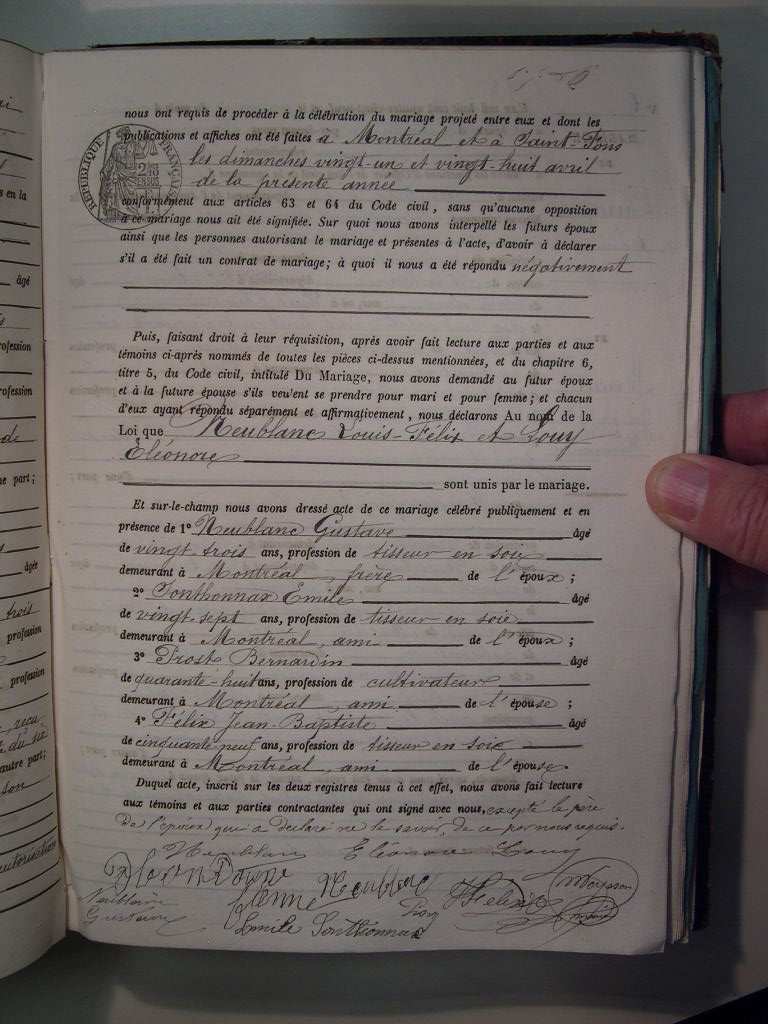 nous ont requis de procéder à la célébration du mariage projeté entre eux et dont les
publications et affiches ont été faites à Montréal et à Saint-Fons
les dimanches vingt-un et vingt-huit avril
de la présente année
RÉPUBLIQUE FRANÇAISE
conformément aux articles 63 et 64 du Code civil, sans qu'aucune opposition
à ce mariage nous ait été signifiée. Sur quoi nous avons interpellé les futurs époux
ainsi que les personnes autorisant le mariage et présentes à l'acte, d'avoir à déclarer
s'il a été fait un contrat de mariage; à quoi il nous a été répondu négativement
Puis, faisant droit à leur réquisition, après avoir fait lecture aux parties et aux
témoins ci-après nommés de toutes les pièces ci-dessus mentionnées, et du chapitre 6,
titre 5, du Code civil, intitulé Du Mariage, nous avons demandé au futur époux
et à la future épouse s'ils veulent se prendre pour mari et pour femme; et chacun
d'eux ayant répondu séparément et affirmativement, nous déclarons Au nom de la
Loi que Neublanc Louis-Félix et Louy
Eléonore
sont unis par le mariage.
Et sur-le-champ nous avons dressé acte de ce mariage célébré publiquement et en
présence de 1° Neublanc Gustave âgé
de vingt trois ans, profession de tisseur en soie
demeurant à Montréal, frère de l'époux;
2° Tonthonnax Emile âgé
de vingt sept ans, profession de tisseur en soie
demeurant à Montréal, ami de l'époux;
3° Prost Bernardin âgé
de quarante-huit ans, profession de cultivateur
demeurant à Montréal, ami de l'épouse;
4° Félix Jean-Baptiste âgé
de cinquante neuf ans, profession de tisseur en soie
demeurant à Montréal, ami de l'épouse.
Duquel acte, inscrit sur les deux registres tenus à cet effet, nous avons fait lecture
aux témoins et aux parties contractantes qui ont signé avec nous, excepté le père
de l'époux qui a déclaré ne le savoir, de ce par nous requis.
Neublanc Eléonore Louy
Neublanc
Neublanc
Gustave
Emile Tonthonnax
Félix